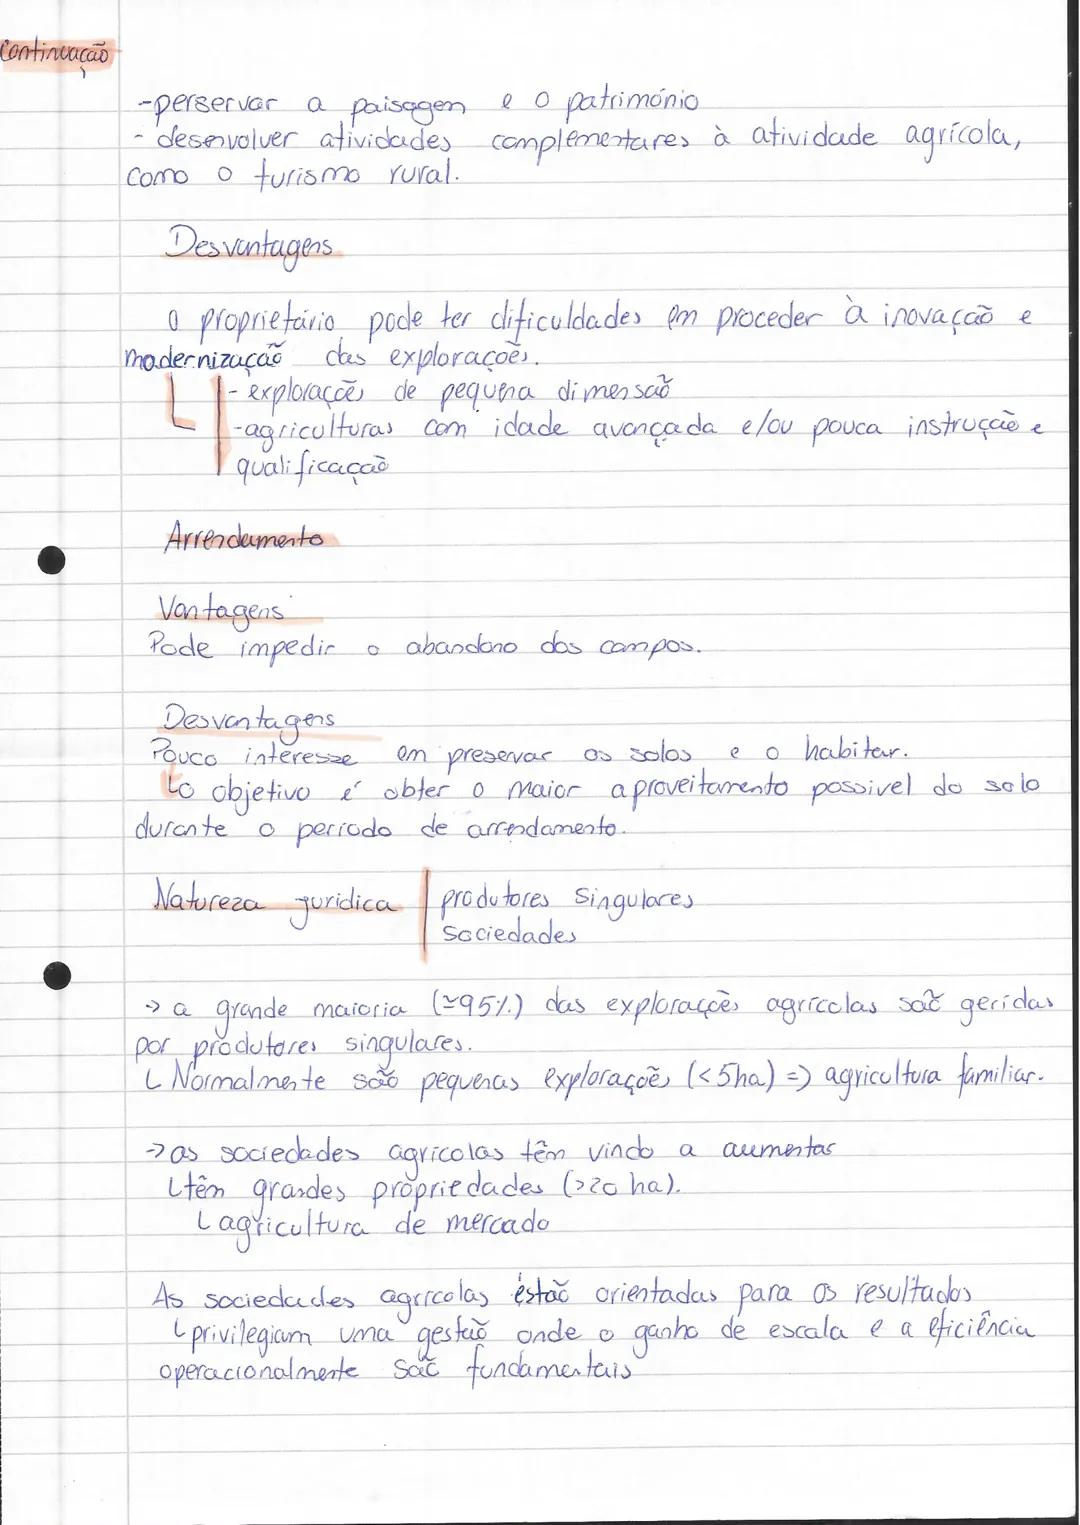 Continuação
-perservar a paisagem e o património
- desenvolver atividades complementares à atividade agrícola,
como o turismo rural.
Desvantagens
O proprietário pode ter dificuldades em proceder à inovação e
modernização das explorações.
- explorações de pequena dimensão
-agriculturas com idade avançada e/ou pouca instrução e
qualificação
Arrendamento
Vantagens
Pode impedir o abandono dos campos.
Desvantagens
Pouco interesse em preservar os solos e o habitar.
↳o objetivo é obter o maior aproveitamento possivel do solo
durante o periodo de arrendamento.
Natureza juridica | produtores singulares
sociedades
→ a grande maioria (≃95%) das explorações agrícolas são geridas
por produtores singulares.
↳ Normalmente são pequenas explorações (<5ha) => agricultura familiar.
→ as sociedades agrícolas têm vindo a aumentas
↳ têm grandes propriedades (>20 ha).
↳ agricultura de mercado
As sociedades agrícolas estão orientadas para os resultados
↳ privilegiam uma gestão onde o ganho de escala e a eficiência
operacionalmente são fundamentais